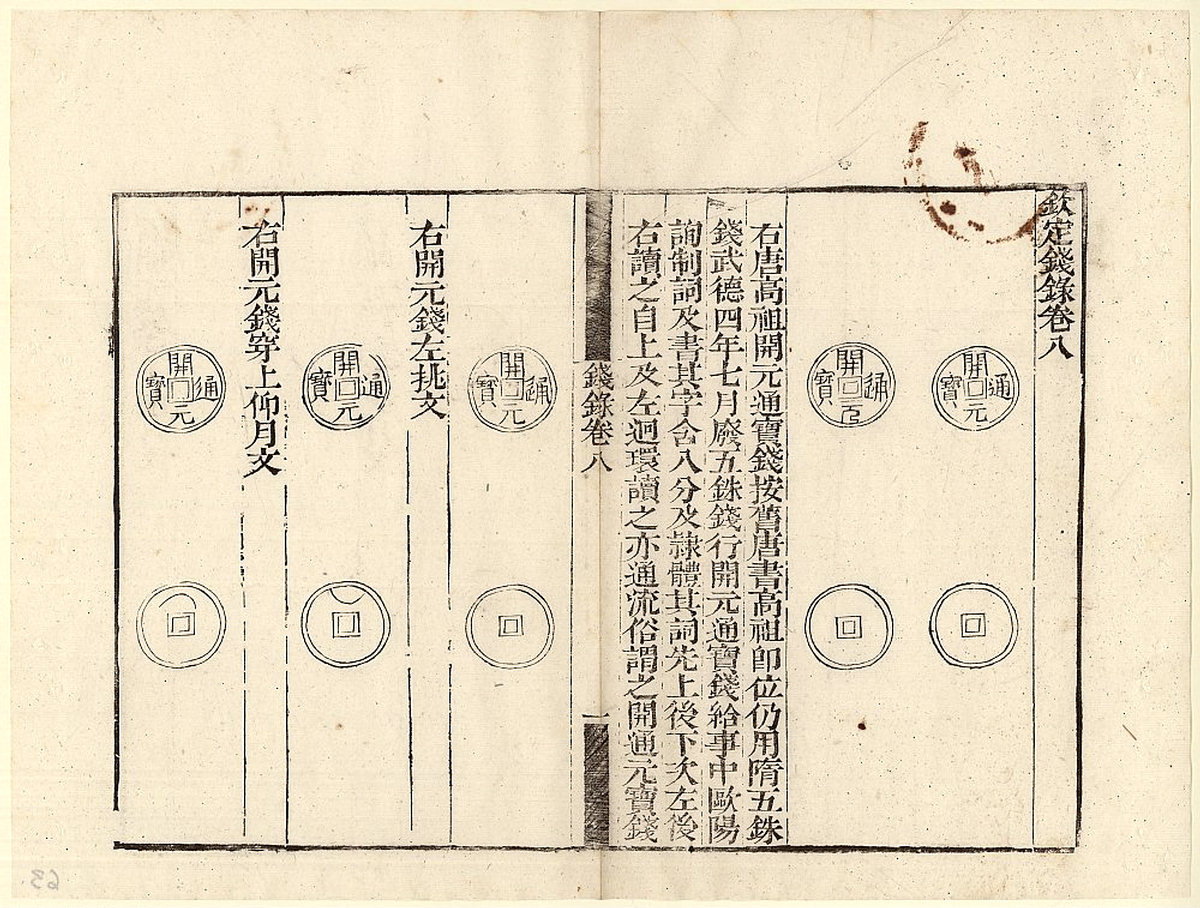 欽定錢錄卷八
開元通寶
開元通寶
右唐高祖開元通寶錢按舊唐書高祖卽位仍用隋五銖
錢武德四年七月廢五銖錢行開元通寶錢給事中歐陽
詢制詞及書其字含八分及隸體其詞先上後下次左後
右讀之自上及左迴環讀之亦通流俗謂之開通元寶錢
錢錄卷八
一
開元通寶
右開元錢左挑文
開元通寶
右開元錢穿上仰月文
開元通寶
63